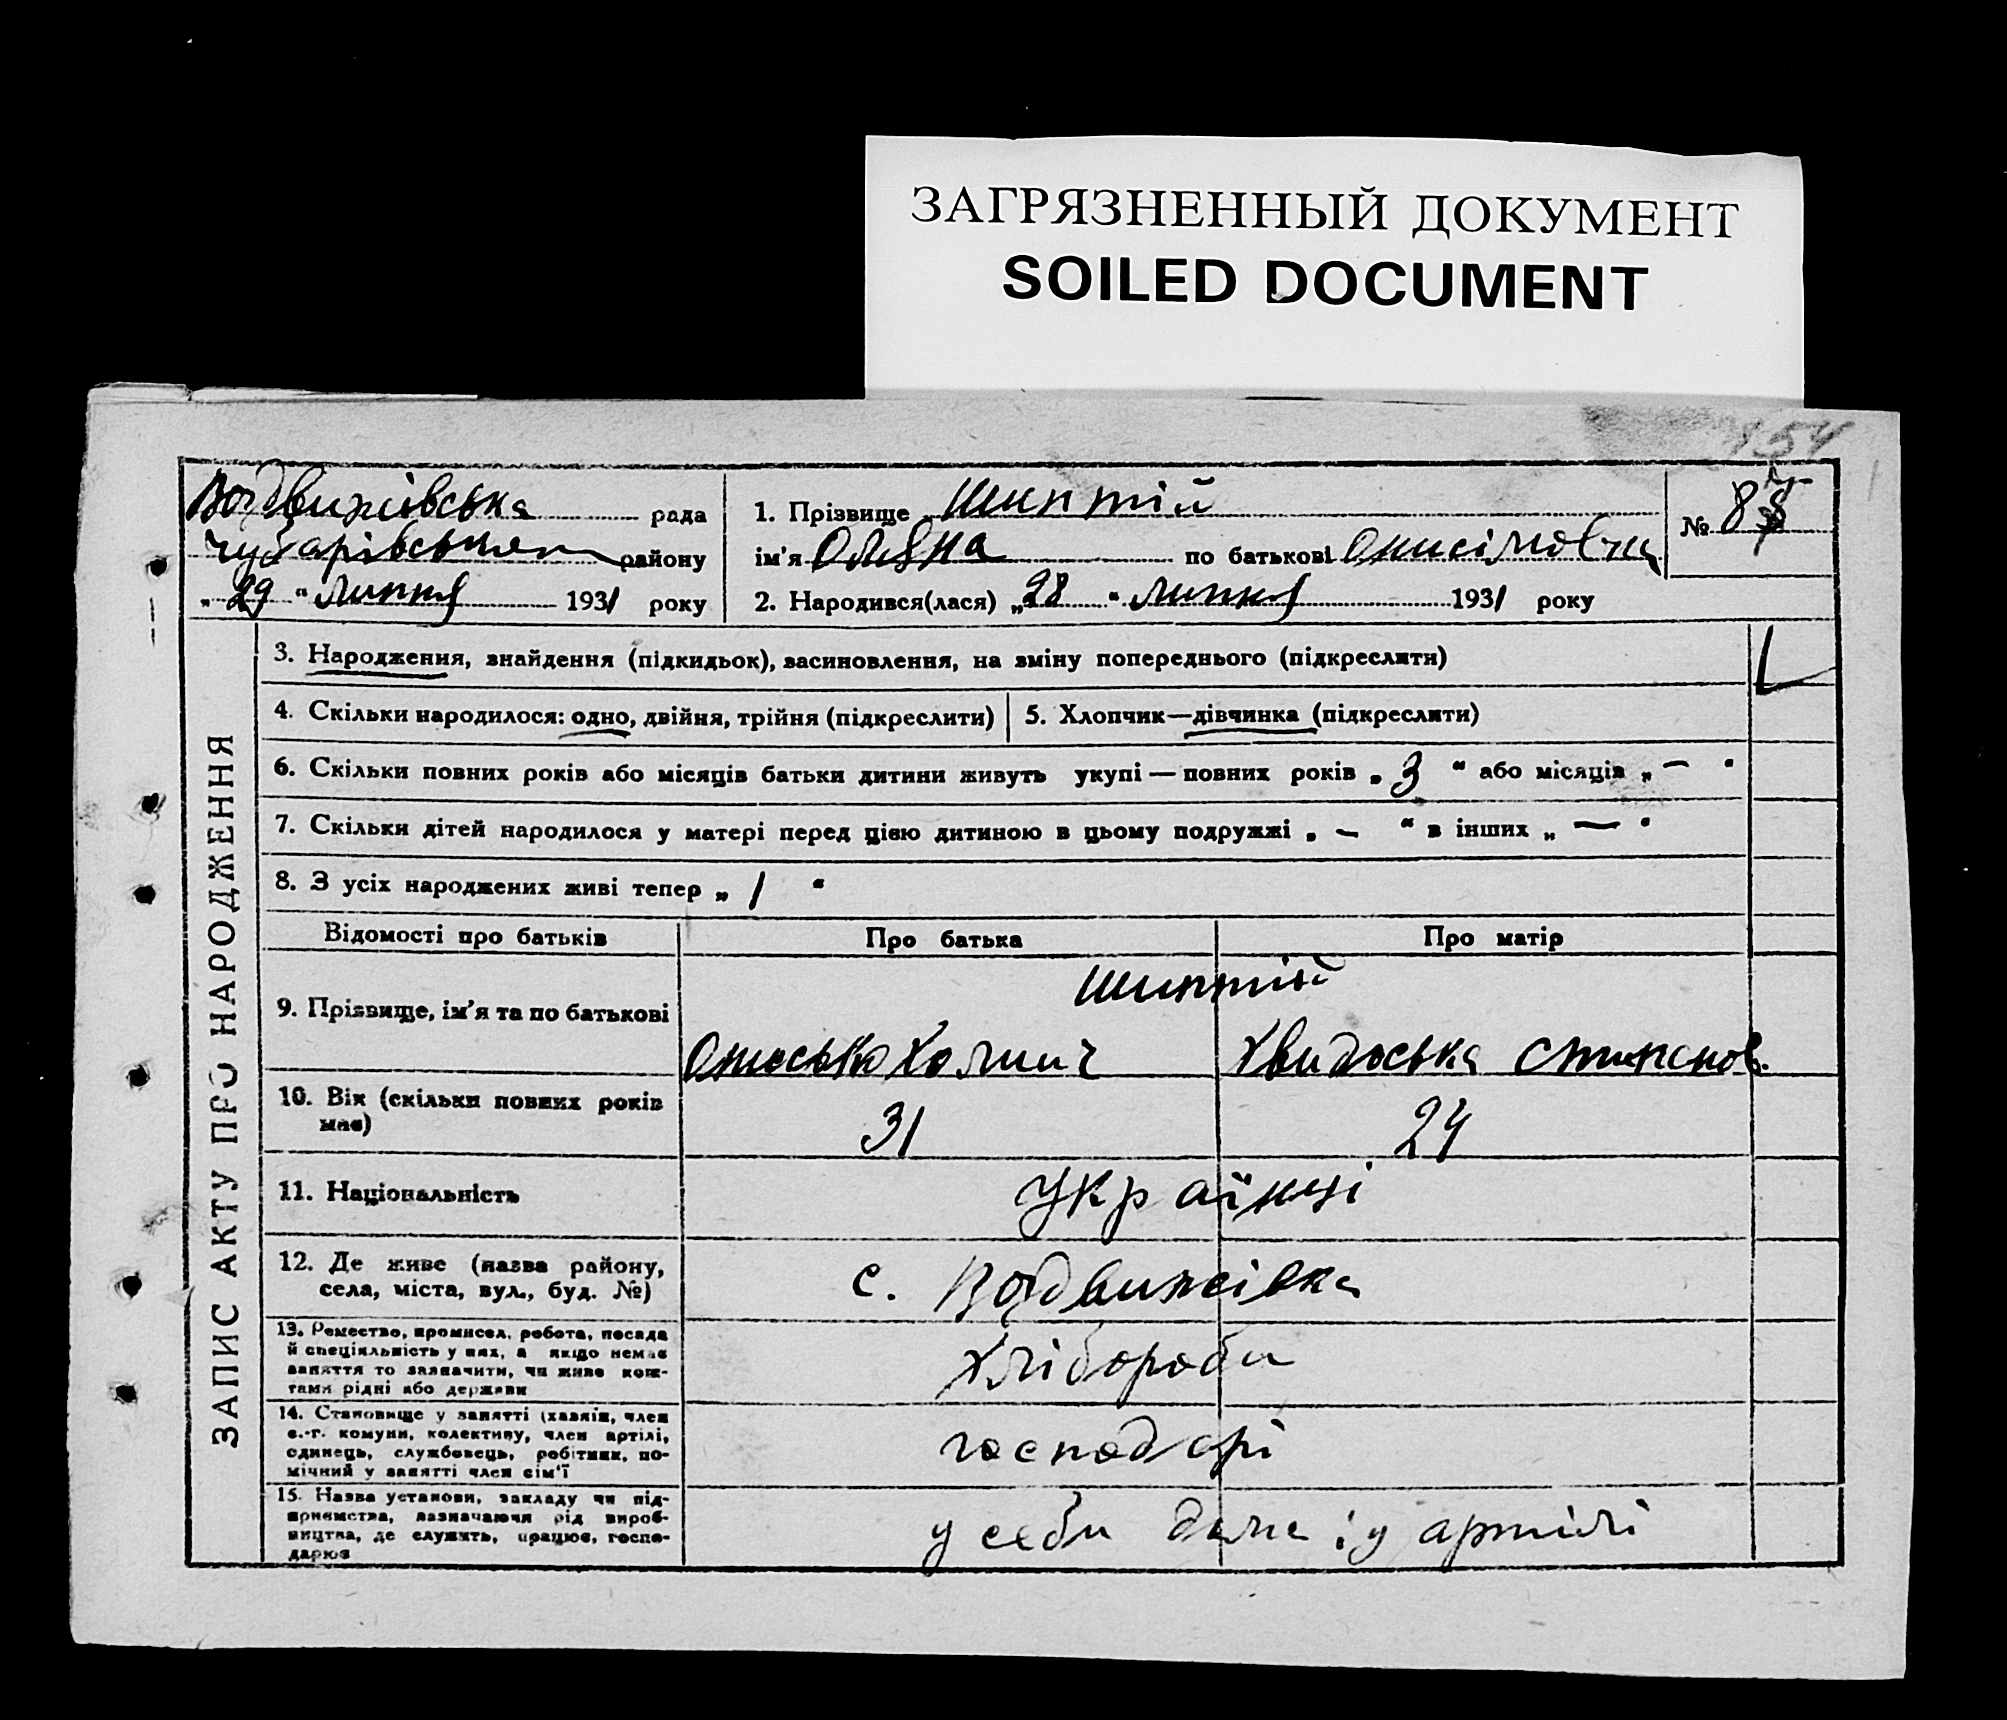 ЗАГРЯЗНЕННЫЙ ДОКУМЕНТ
SOILED DOCUMENT
154
Воздвижівська рада
Чубарівського району
„29“ Липня 1931 року
1. Прізвище Шиптій
ім'я Оляна по батькові Онисімовна
2. Народився(лася) „28“ Липня 1931 року
№ 87
ЗАПИС АКТУ ПРО НАРОДЖЕННЯ
3. Народження, знайдення (підкидьок), засиновлення, на зміну попереднього (підкреслити)
4. Скільки народилося: одно, двійня, трійня (підкреслити)
5. Хлопчик—дівчинка (підкреслити)
6. Скільки повних років або місяців батьки дитини живуть укупі — повних років „3“ або місяців „—“
7. Скільки дітей народилося у матері перед цією дитиною в цьому подружжі „—“ в інших „—“
8. З усіх народжених живі тепер „1“
Відомості про батьків
Про батька
Про матір
9. Прізвище, ім'я та по батькові
Шиптій
Хвидоська
10. Вік (скільки повних років
має)
31
24
11. Національність
Українці
12. Де живе (назва району,
села, міста, вул., буд. №)
с. Воздвижівка
13. Ремество, промисел, робота, посада
й спеціяльність у них, а якщо немає
заняття то зазначити, чи живе кош-
тами рідні або держави
Хлібороби
14. Становище у занятті (хазяїн, член
с.-г. комуни, колективу, член артілі,
одинець, службовець, робітник, по-
мічний у занятті член сім'ї
господарі
15. Назва установи, закладу чи під-
приємства, зазначаючи рід вироб-
ництва, де служить, працює, госпо-
дарює
у себи дома і у артілі